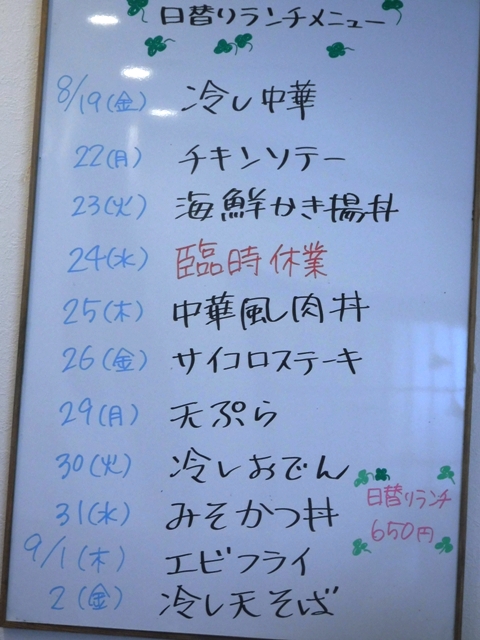 日替りランチメニュー
8/19(金) 冷し中華
22(月) チキンソテー
23(火) 海鮮かき揚丼
24(水) 臨時休業
25(木) 中華風し肉丼
26(金) サイコロステーキ
29(月) 天ぷら
30(火) 冷しおでん
31(水) みそかつ丼
9/1(木) エビフライ
2(金) 冷し天そば
日替りランチ
650円